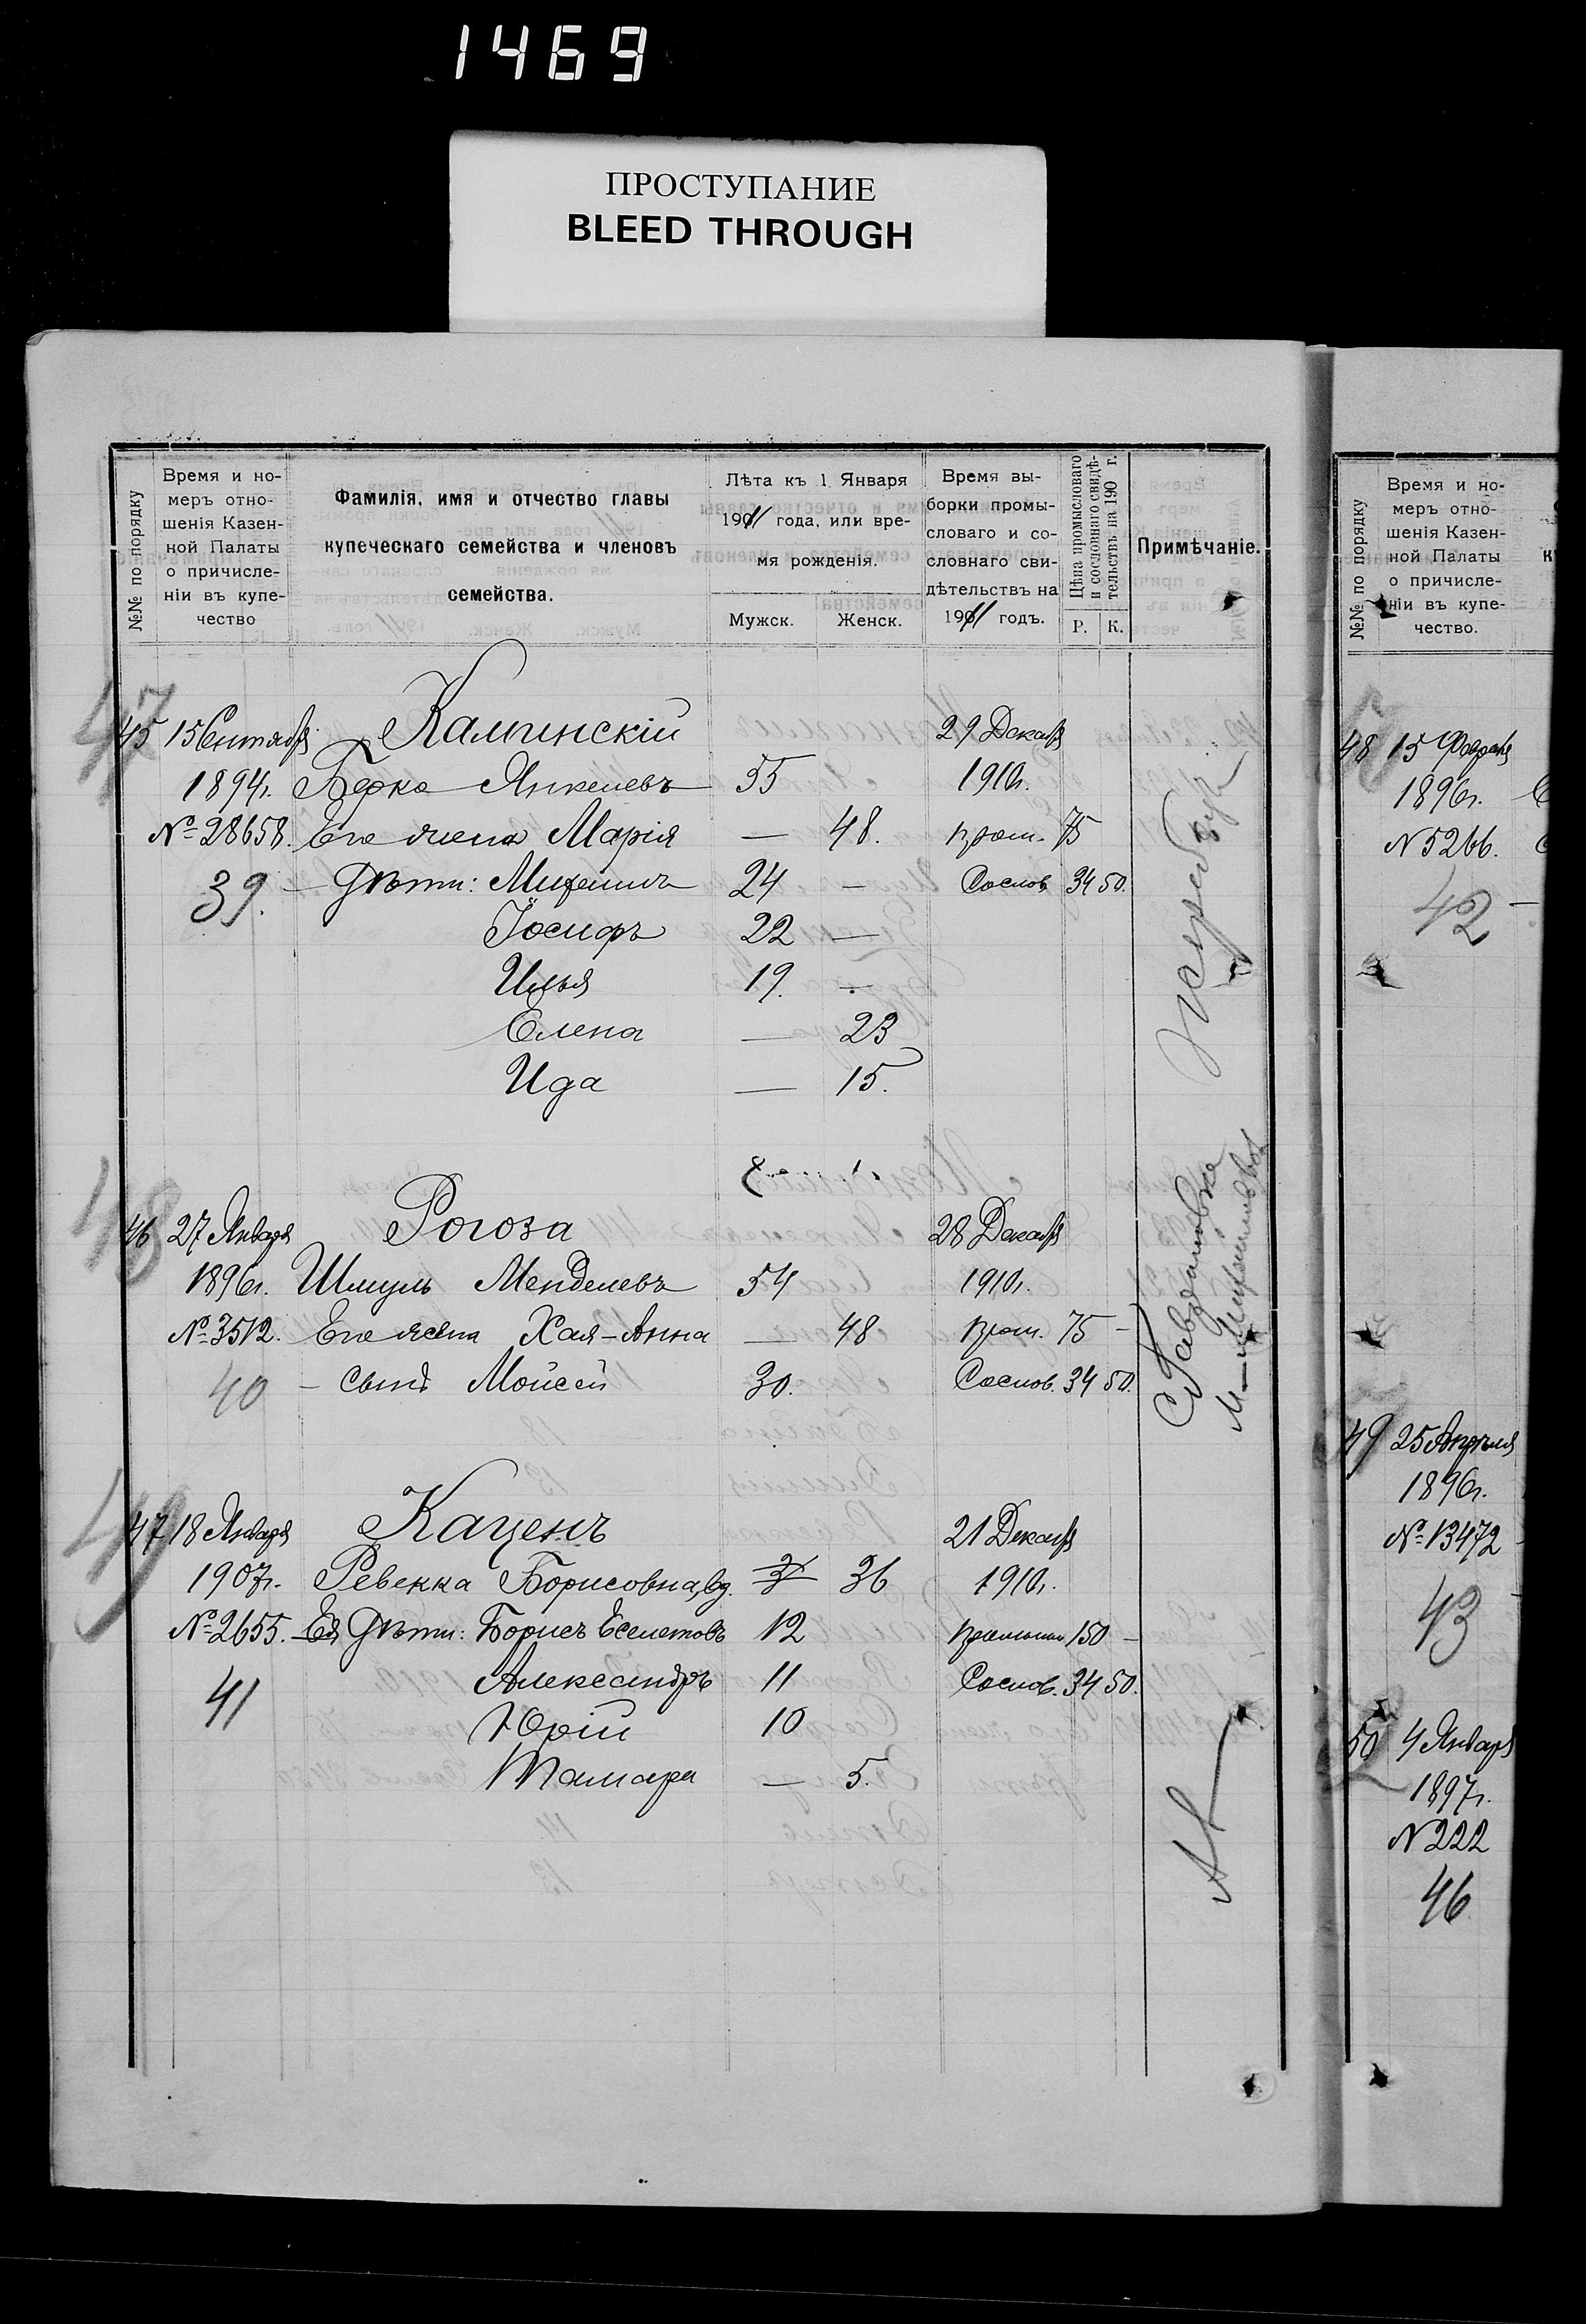 1469
ПРОСТУПАНИЕ
BLEED THROUGH
№№ по порядку
Время и но-
меръ отно-
шенія Казен-
ной Палаты
о причисле-
ніи въ купе-
чество
Фамилія, имя и отчество главы
купеческаго семейства и членовъ
семейства.
Лѣта къ 1 Января
1911 года, или вре-
мя рожденія.
Мужск. Женск.
Время вы-
борки промы-
словаго и со-
словнаго сви-
дѣтельствъ на
1911 годъ.
Цѣна промысловаго
и сословнаго свидѣ-
тельствъ на 190 г.
Р. К.
Примѣчаніе.
47
45 15 Сентября Каминскій 29 Декабря
1894г. Берко Янкелевъ 55 1910г.
№ 28658. Его жена Марія — 48. пром. 75
39. — Дѣти: Михаилъ 24 — Сослов. 34 50.
Іосифъ 22 —
Илья 19. —
Елена — 23
Ида — 15.
48
46 27 Января Рогоза 28 Декабря
1896г. Шмуль Менделевъ 54 1910г.
№ 3512. Его жена Хая-Анна — 48 пром. 75 —
40 — сынъ Мойсей 30. Сослов. 34 50.
49
47 18 Января Каценъ 21 Декабря
1907г. Ревекка Борисовна, вд. 36 1910г.
№ 2655. Ея Дѣти: Борисъ 12 150 —
41 Александръ 11 Сослов. 34 50.
Юрій 10
Тамара — 5.
№№ по порядку
Время и но-
меръ отно-
шенія Казен-
ной Палаты
о причисле-
ніи въ купе-
чество.
48 15 Февраля
1896г.
№ 5266.
42 —
49 25 Апрѣля
1896г.
№ 13472
43
50 4 Января
1897г.
№ 222
46